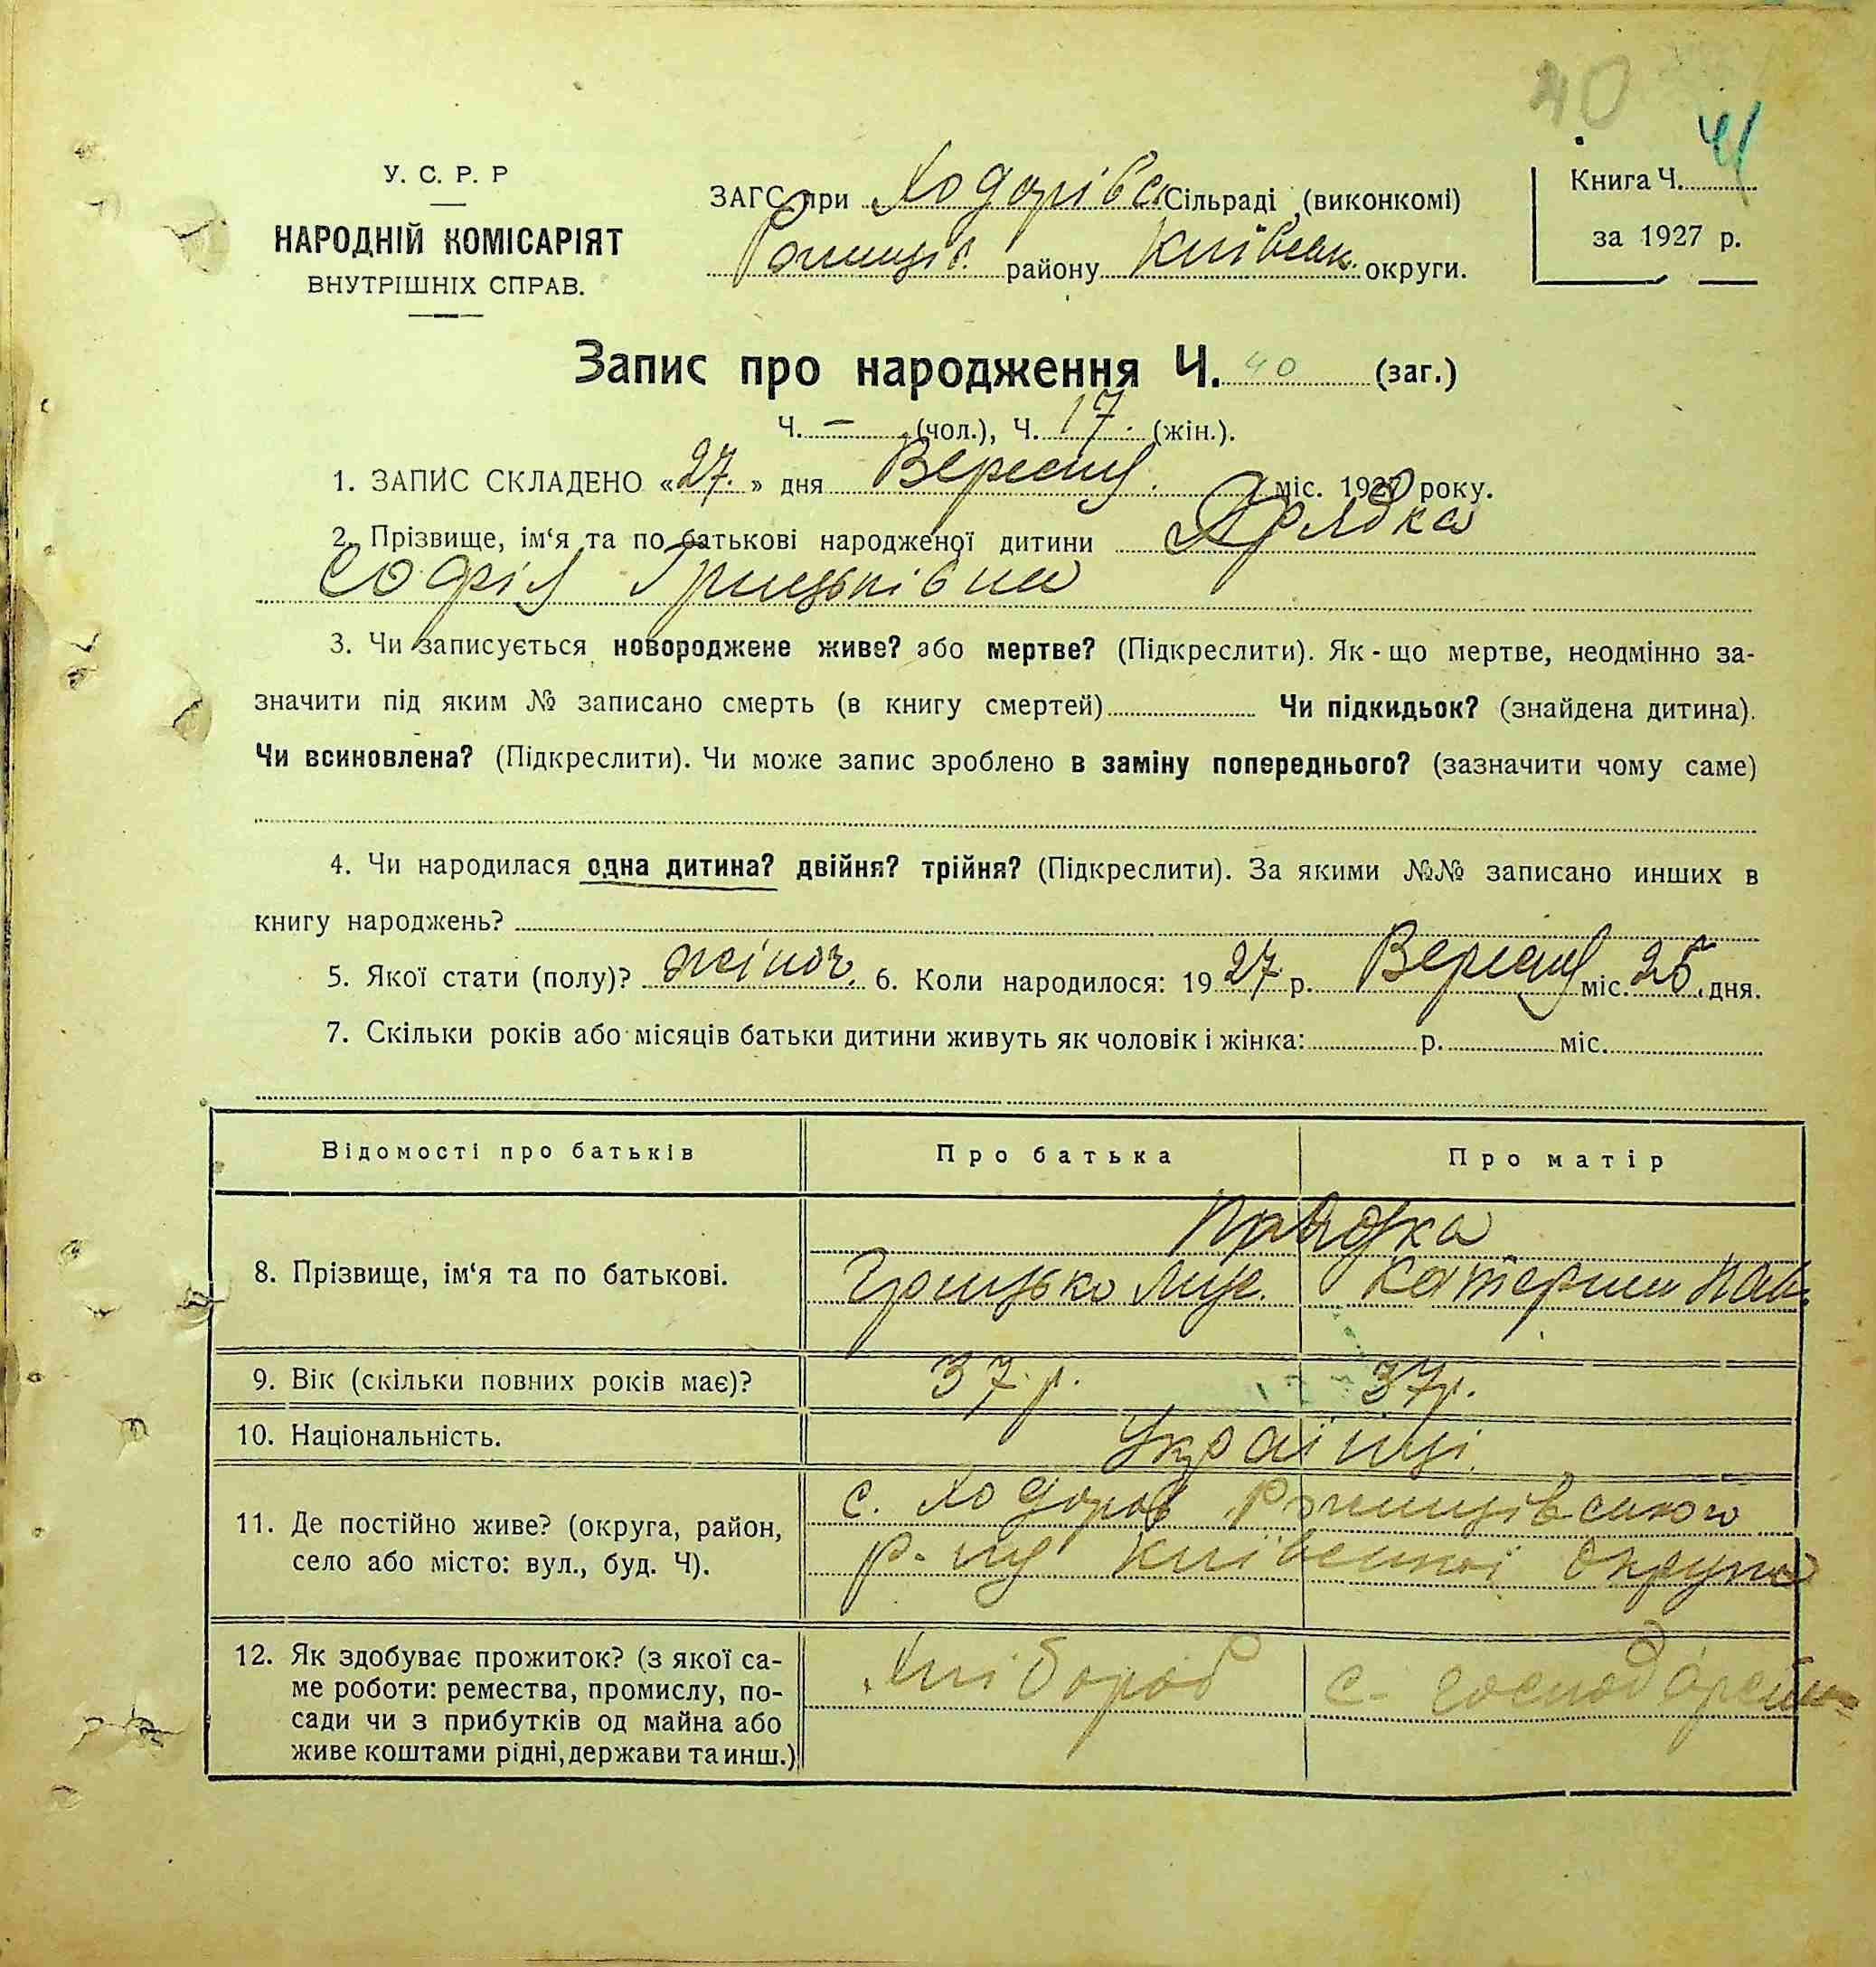 40
41
У. С. Р. Р
НАРОДНІЙ КОМІСАРІЯТ
ВНУТРІШНІХ СПРАВ.
ЗАГС при Ходорівс Сільраді (виконкомі)
Ржищів. району Київськ. округи.
Книга Ч.
за 1927 р.
Запис про народження Ч. 40 (заг.)
Ч. — (чол.), Ч. 17. (жін.).
1. ЗАПИС СКЛАДЕНО «27.» дня Вересня. міс. 1927 року.
2. Прізвище, ім‘я та по батькові народженої дитини Прядка
Софія Грицьківна
3. Чи записується новороджене живе? або мертве? (Підкреслити). Як-що мертве, неодмінно за-
значити під яким № записано смерть (в книгу смертей) Чи підкидьок? (знайдена дитина).
Чи всиновлена? (Підкреслити). Чи може запис зроблено в заміну попереднього? (зазначити чому саме)
4. Чи народилася одна дитина? двійня? трійня? (Підкреслити). За якими №№ записано инших в
книгу народжень?
5. Якої стати (полу)? жіноч. 6. Коли народилося: 1927 р. Вересня міс. 25 дня.
7. Скільки років або місяців батьки дитини живуть як чоловік і жінка: р. міс.
Відомості про батьків Про батька Про матір
8. Прізвище, ім‘я та по батькові. Прядка
Грицько Катерина
9. Вік (скільки повних років має)? 37 р. 37 р.
10. Національність. Українці
11. Де постійно живе? (округа, район,
село або місто: вул., буд. Ч).
с. Ходорів Ржищівського
р-ну Київської округи
12. Як здобуває прожиток? (з якої са-
ме роботи: ремества, промислу, по-
сади чи з прибутків од майна або
живе коштами рідні, держави та инш.)
Хлібороб